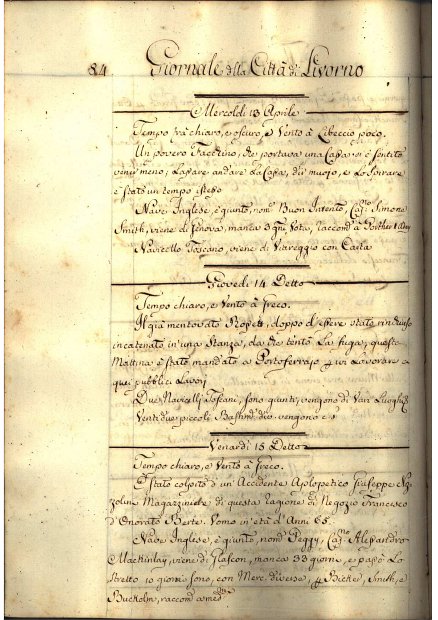 84 Giornale della Città di Livorno
Mercoldi 13 Aprile
Tempo frà chiaro, e oscuro, e Vento à Libeccio poco.
Un povero Facchino, che portava una Cassa si è sentito
venir meno, Lasciare andare La Cassa, dir muojo, e Lo Spirare
è stato un tempo istesso
Nave Inglese, è giunto, nom.e Buon Intento, Cap.no Simone
Smith, viene di Genova, manca 3 gni Vota, raccom.
Navicello Toscano, viene di Viareggio con Carta
Giovedi 14 Detto
Tempo chiaro, e Vento à Greco.
Il già mentovato Rossett, doppo d'essere stato rinchiuso
incatenato in una Stanza, da che tentò La fuga, questa
Mattina è stato mandato a Portoferrajo p ivi Lavorare a
quei pubblici Lavori
Due Navicelli Toscani, sono giunti, vengono di Vari Luoghi
Ventidue piccoli Bastim.ti vengono
Venardi 15 Detto
Tempo chiaro, e Vento à Greco.
È stato colpito d'un Accidente Aplopetico Giuseppe
Magazziniere di questa ragione di Negozio Francesco
d'Onorato Berte. Uomo in età d'Anni 65.
Nave Inglese, è giunto, nom.e Peggy, Cap.no Alessandro
Mackinlay, viene di Glascon, manca 33 giorni, e passò Lo
Stretto 10 giorni sono, con Merc. diverse, p Bicker, Smith, e
Buckolm, raccom. a med.mi